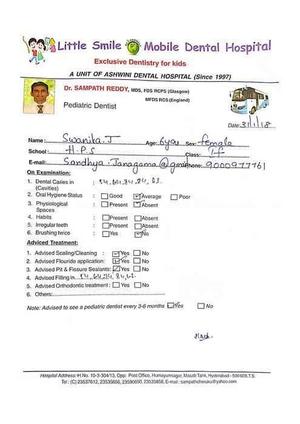 Little Smile Mobile Dental Hospital
Exclusive Dentistry for kids
A UNIT OF ASHWINI DENTAL HOSPITAL (Since 1997)
Dr. SAMPATH REDDY, MDS, FDS RCPS (Glasgow)
MFDS RCS (England)
Pediatric Dentist
Date: 3/1/18
Name: Swanika.J Age: 6yrs Sex: female
School: H.P.S Class:
E-mail: Phone: 9000977761
On Examination:
1. Dental Caries in (Cavities) :
2. Oral Hygiene Status : Good Average Poor
3. Physiological Spaces : Present Absent
4. Habits : Present Absent
5. Irregular teeth : Present Absent
6. Brushing twice : Yes No
Adviced Treatment:
1. Advised Scaling/Cleaning : Yes No
2. Advised Flouride application: Yes No
3. Advised Pit & Fissure Sealants: Yes No
4. Advised Filling in
5. Advised Orthodontic treatment : Yes No
6. Others:
Note: Advised to see a pediatric dentist every 3-6 months Yes No
Hospital Address: H.No. 10-3-304/13, Opp. Post Office, Humayunnagar, Masab Tank, Hyderabad - 500028.T.S.
Tel: (C) 23537612, 23530656, 23590690, 23320858, E-mail: